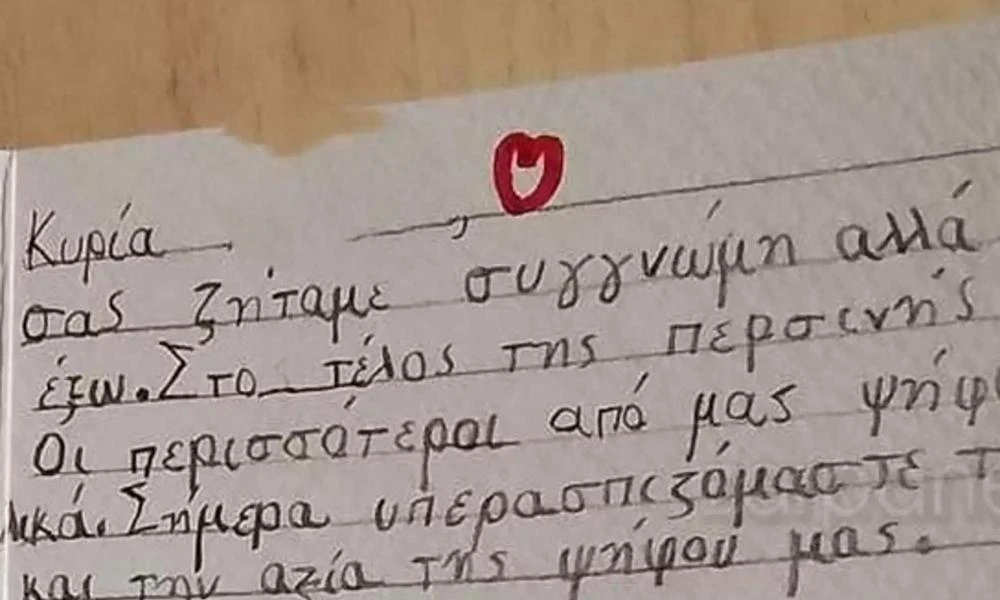 Κυρία ,
σας ζητάμε συγγνώμη αλλά
έξω. Στο τέλος της περσινής
Οι περισσότεροι από μας ψήφ
ικά. Σήμερα υπερασπιζόμαστε τ
και την αξία της ψήφου μας.